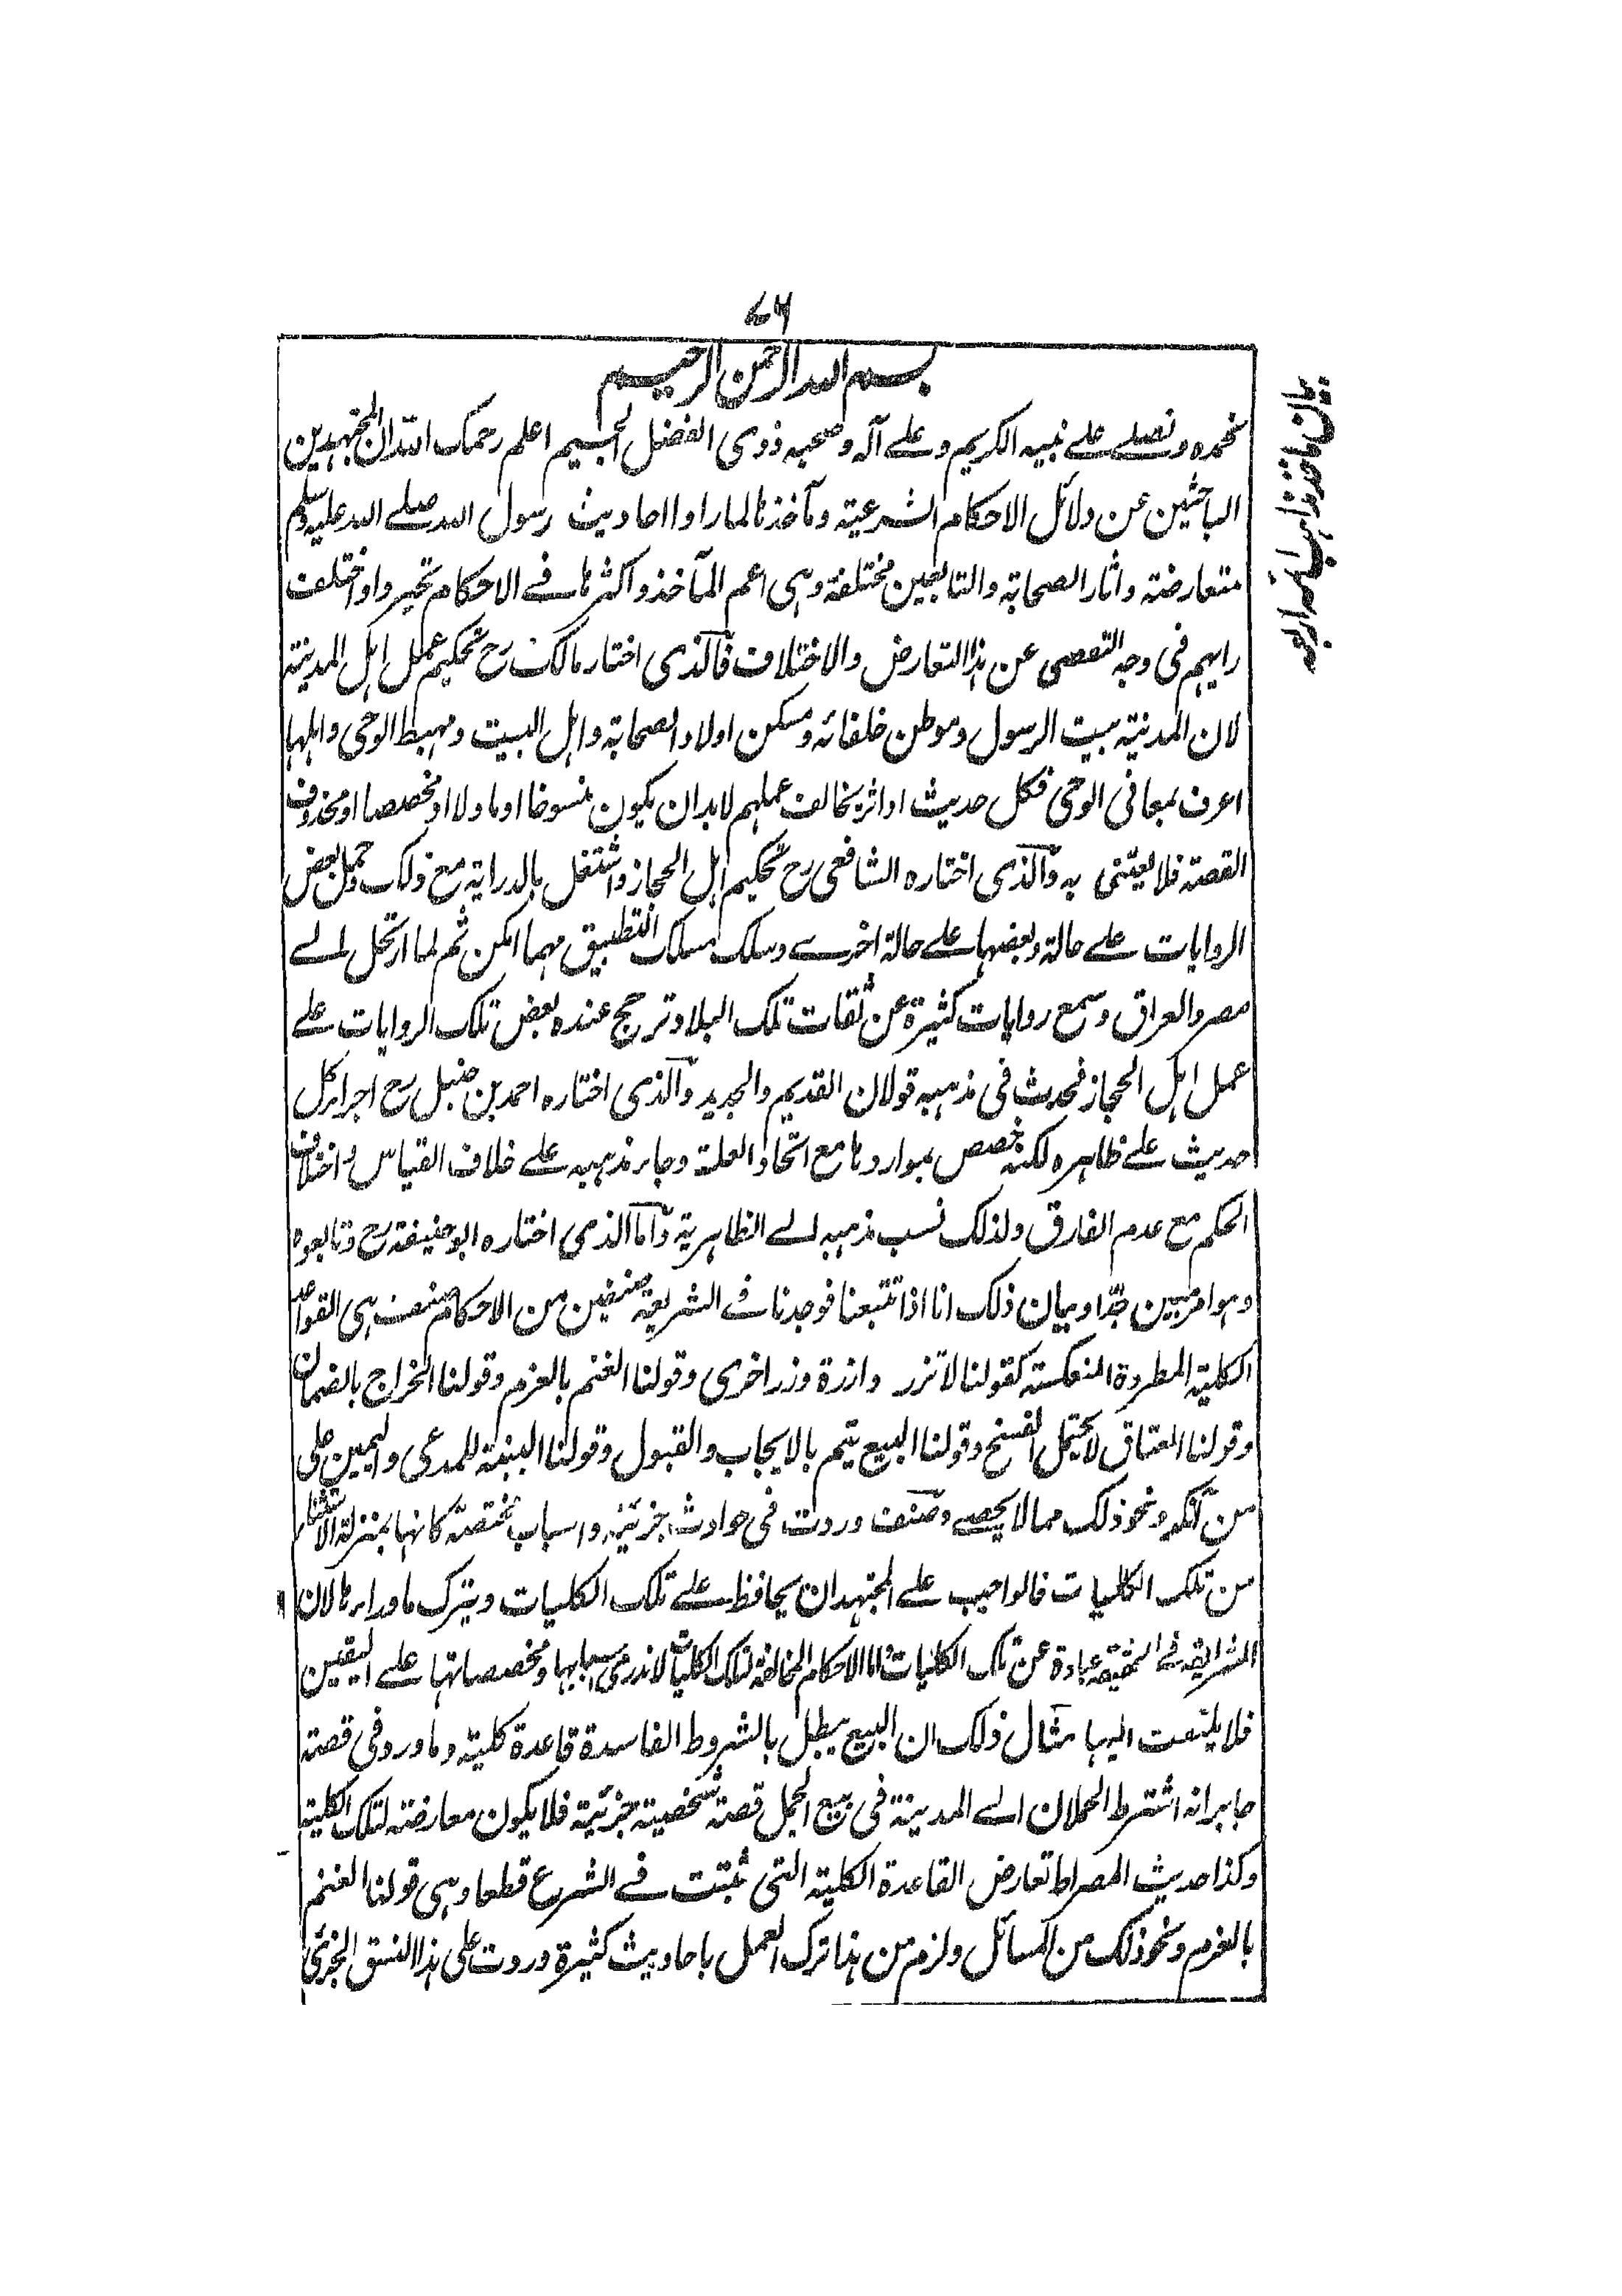 ۷۶
بسم الله الرحمن الرحیم
نحمده ونصلے علے نبیه الکریم وعلے آله وصحبه ذوی الفضل الجسیم اعلم رحمک الله ان المجتهدین
الباحثین عن دلائل الاحکام الشرعیة ومآخذها لما راوا احادیث رسول الله صلے الله علیه وسلم
متعارضة واثار الصحابة والتابعین مختلفة وهی اعم المآخذ واکثرها فے الاحکام تحیروا واختلف
رایهم فی وجه التفصی عن هذا التعارض والاختلاف فالذی اختار مالک رح تحکیم عمل اهل المدینة
لان المدینة بیت الرسول وموطن خلفائه ومسکن اولاد الصحابة واهل البیت ومهبط الوحی واهلها
اعرف بمعانی الوحی فکل حدیث او اثر یخالف عملهم لابد ان یکون منسوخا او ماولا او مخصصا او محذوف
القصة فلا یعتنی به والذی اختاره الشافعی رح تحکیم اهل الحجاز واشتغل بالدرایة مع ذلک وحمل بعض
الروایات علے حالة وبعضها علے حالة اخرے وسلک مسلک التطبیق مهما امکن ثم لما ارتحل الے
مصر والعراق وسمع روایات کثیرة عن ثقات تلک البلاد ترجح عنده بعض تلک الروایات علے
عمل اهل الحجاز فحدث فی مذهبه قولان القدیم والجدید والذی اختاره احمد بن حنبل رح اجراء کل
حدیث علے ظاهره لکنه خصص بمواردها مع اتحاد العلة وجاء مذهبه علے خلاف القیاس واختلاف
الحکم مع عدم الفارق ولذلک نسب مذهبه الے الظاهریة واما الذی اختاره ابو حنیفة رح وتابعوه
وهو امر بین جدا وبیان ذلک انا اذا تتبعنا فوجدنا فے الشریعة صنفین من الاحکام صنف هی القواعد
الکلیة المطردة المنعکسة کقولنا لا تزر وازرة وزر اخری وقولنا الغنم بالغرم وقولنا الخراج بالضمان
وقولنا العتاق لا یحتمل الفسخ وقولنا البیع یتم بالایجاب والقبول وقولنا البینة للمدعی والیمین علی
من انکر ونحو ذلک مما لا یحصے وصنف وردت فی حوادث جزئیة واسباب مختصة کانها بمنزلة الاستثناء
من تلک الکلیات فالواجب علے المجتهد ان یحافظ علے تلک الکلیات ویترک ما وراءها لان
الشریعة فے الحقیقة عبارة عن تلک الکلیات واما الاحکام المخالفة لتلک الکلیات لا ندری اسبابها ومخصصاتها علے الیقین
فلا یلتفت الیها مثال ذلک ان البیع یبطل بالشروط الفاسدة قاعدة کلیة وما ورد فی قصة
جابر انه اشترط الحملان الے المدینة فی بیع الجمل قصة شخصیة جزئیة فلا یکون معارضة لتلک الکلیة
وکذا حدیث المصراط تعارض القاعدة الکلیة التی ثبتت فے الشرع قطعا وهی قولنا الغنم
بالغرم ونحو ذلک من المسائل ولزم من هذا ترک العمل باحادیث کثیرة وردت علی هذا النسق الجزئی
بیان ماخذ مذاهب ائمه اربعه